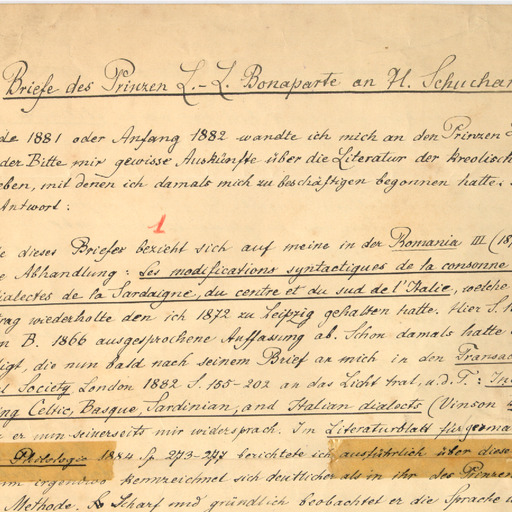 Briefe des Prinzen L.-L. Bonaparte an H. Schuchar
de 1881 oder Anfang 1882 wandte ich mich an den Prinzen
der Bitte mir gewisse Auskünfte über die Literatur der kreolisch
eben, mit denen ich damals mich zu beschäftigen begonnen hatte.
Antwort:
1
e dieses Briefes bezieht sich auf meine in der Romania III (18
e Abhandlung: Les modifications syntactiques de la consonne
dialectes de la Sardaigne, du centre et du sud de l'Italie, welche
trag wiederholte den ich 1872 zu Leipzig gehalten hatte. Hier S.
n B. 1866 ausgesprochene Auffassung ab. Schon damals hatte
digt, die nun bald nach seinem Brief an mich in den Transac
l Society London 1882 S. 155-202 an das Licht trat, u.d.T.: In
ing Celtic, Basque, Sardinian, and Italian dialects (Vinson
er nun seinerseits mir widersprach. Im Literaturblatt für germa
Philologie 1884 Sp. 273-277 berichtete ich ausführlich über diese
irgendwo kennzeichnet sich deutlicher als in ihr des Prinzen
Methode. Scharf und gründlich beobachtet er die Sprache